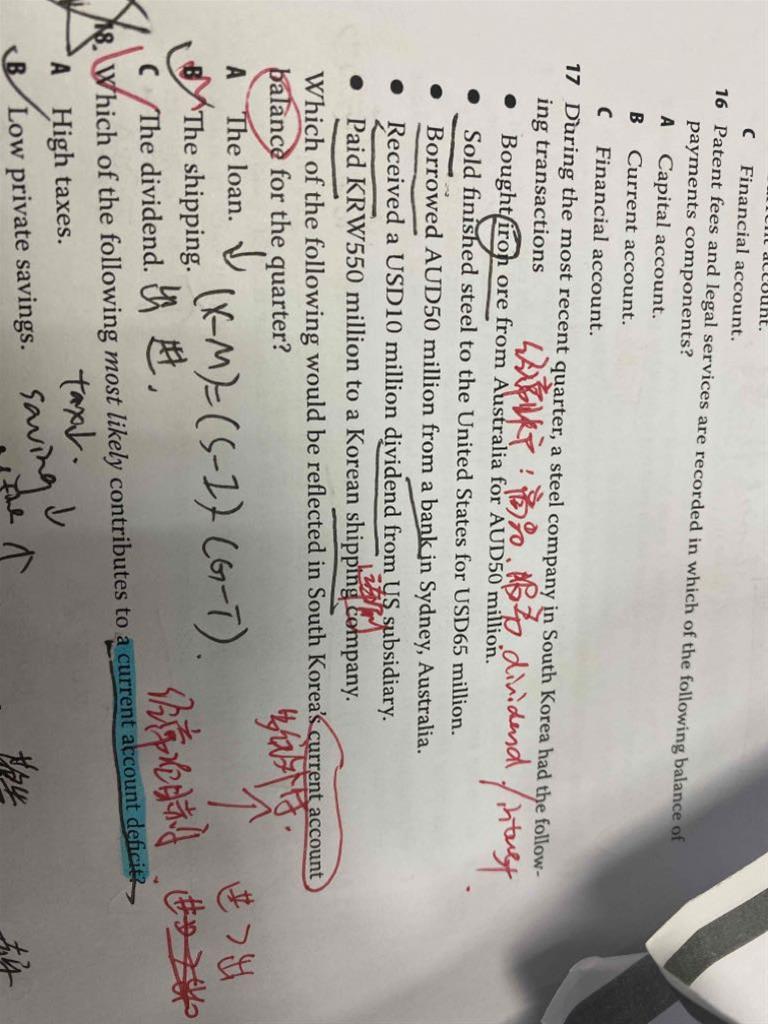 current account.
C Financial account.
16 Patent fees and legal services are recorded in which of the following balance of
payments components?
A Capital account.
B Current account.
C Financial account.
17 During the most recent quarter, a steel company in South Korea had the follow-
ing transactions
• Bought iron ore from Australia for AUD50 million.
商品、服务、dividend / interest
• Sold finished steel to the United States for USD65 million.
• Borrowed AUD50 million from a bank in Sydney, Australia.
• Received a USD10 million dividend from US subsidiary.
• Paid KRW550 million to a Korean shipping company.
Which of the following would be reflected in South Korea's current account
balance for the quarter?
A The loan. ↓
B The shipping. (X-M)=(S-I)+(G-T).
C The dividend. 出 进,
进 > 出
18. Which of the following most likely contributes to a current account deficit?
A High taxes. tax↓.
B Low private savings. saving ↓